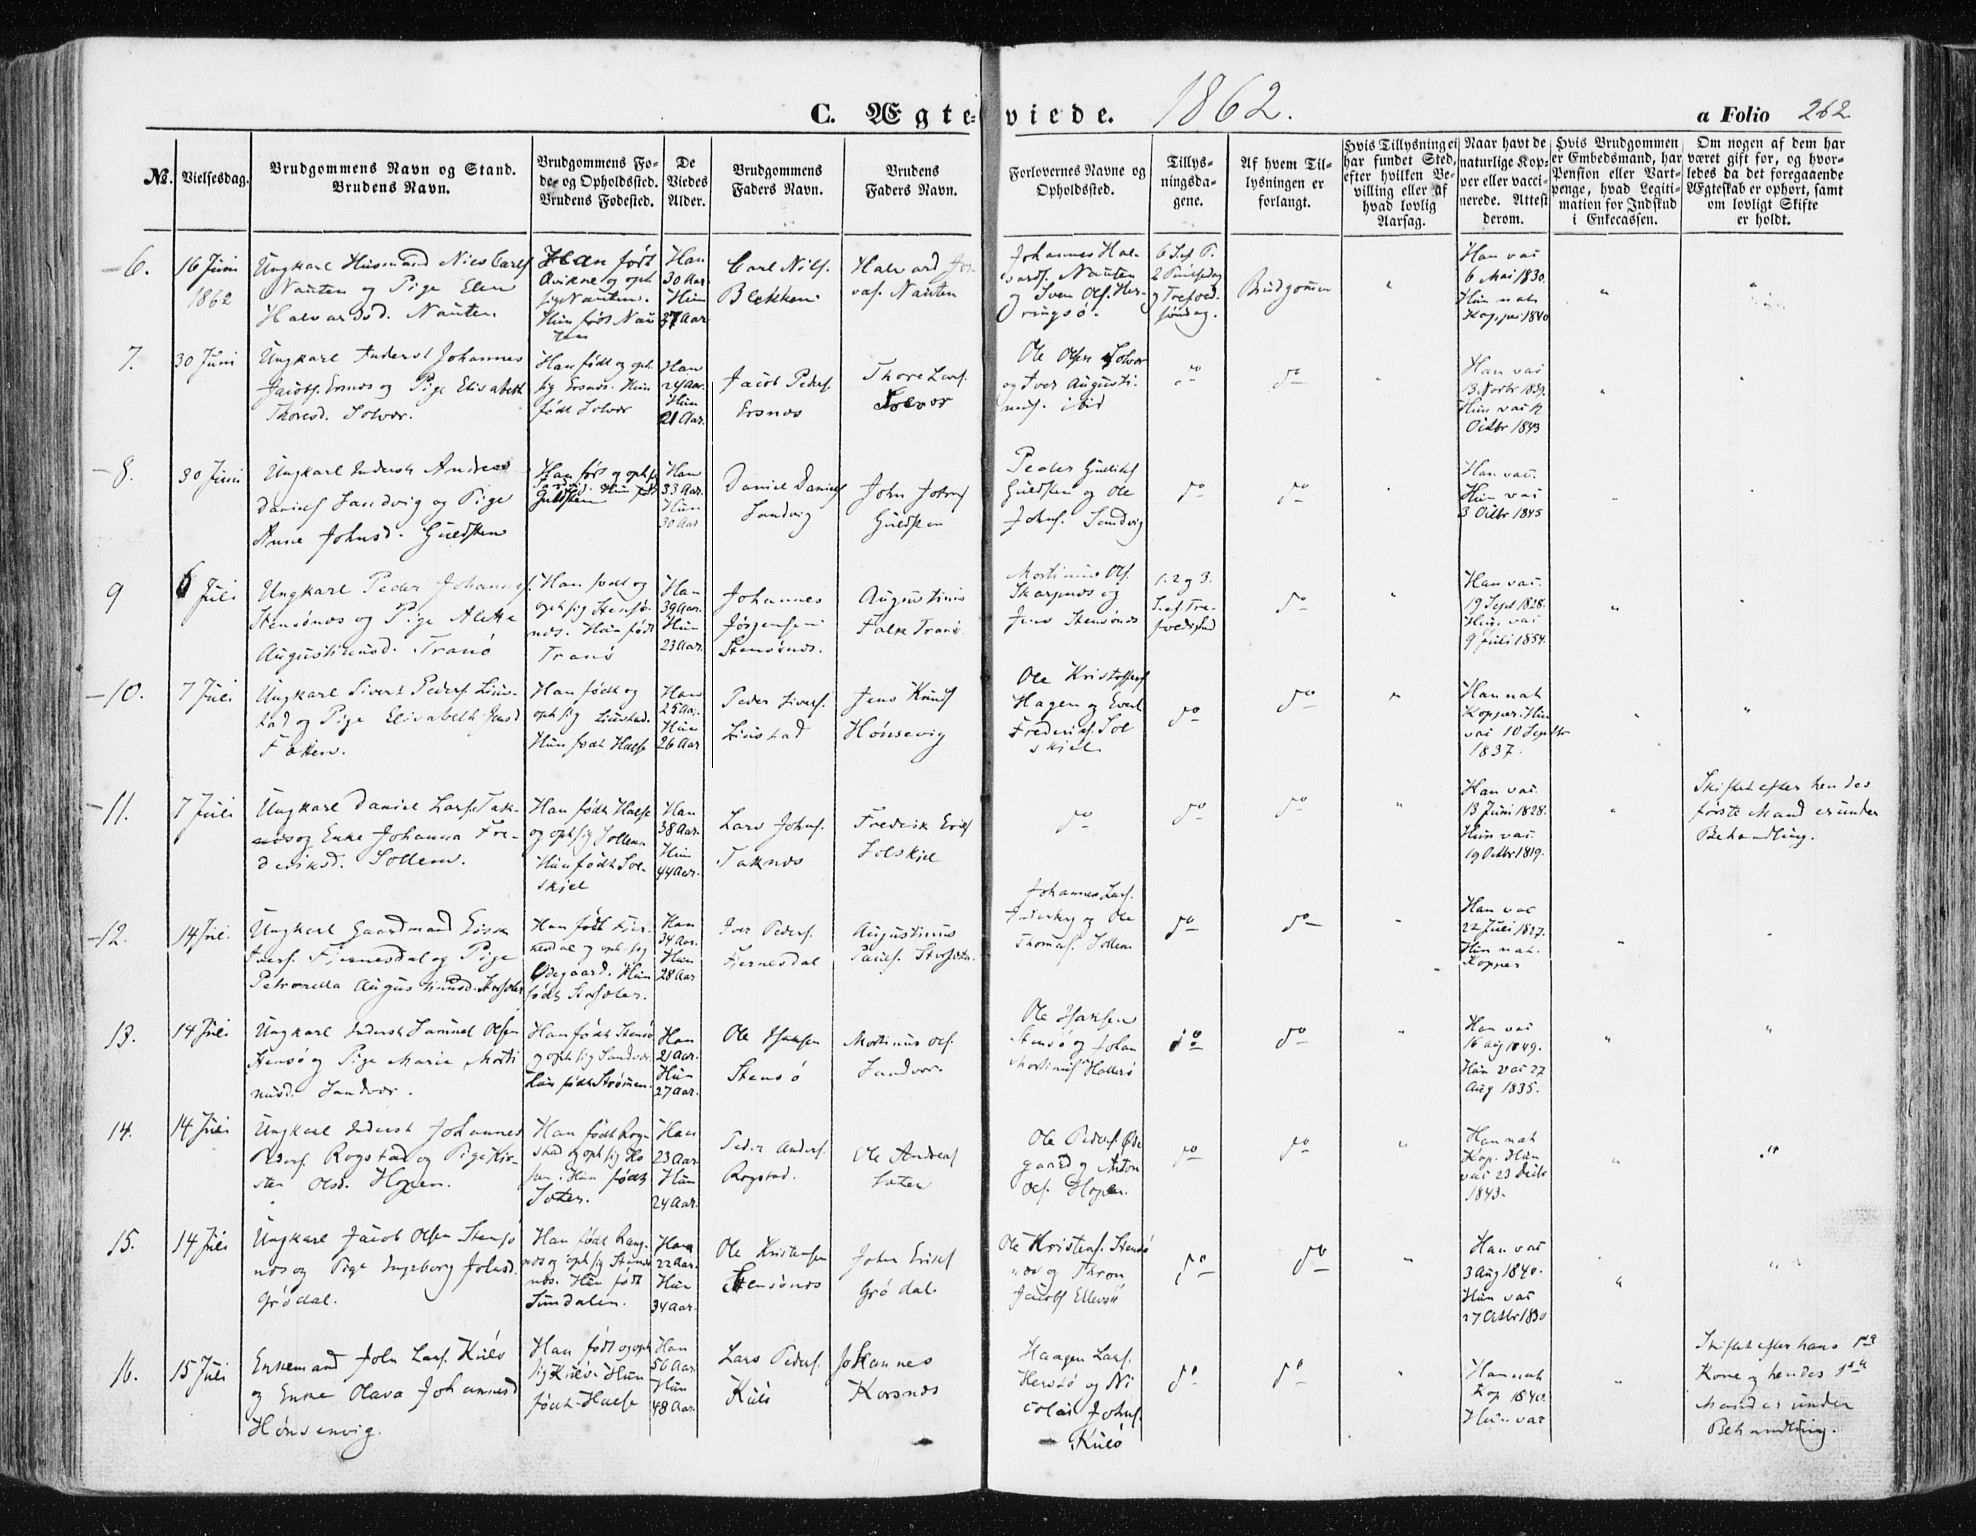 C. Ægteviede. 1862. a Folio 262
№.
Vielsesdag.
Brudgommens Navn og Stand.
Brudens Navn.
Brudgommens Fo-
de- og Opholdssted.
Brudens Fødested.
De
Viedes
Alder.
Brudgommens
Faders Navn.
Brudens
Faders Navn.
Forlovernes Navne og
Opholdssted.
Tillys-
ningsda-
gene.
Af hvem Til-
lysningen er
forlangt.
Hvis Tillysning ei
har fundet Sted,
efter hvilken Be-
villing eller af
hvad lovlig
Aarsag.
Naar havt de
naturlige Kop-
per eller vacci-
nerede. Attest
derom.
Hvis Brudgommen
er Embedsmand, har
Pension eller Vart-
penge, hvad Legiti-
mation for Indskud
i Enkecassen.
Om nogen af dem har
været gift før, og hvor-
ledes da det foregaaende
Ægteskab er ophørt, samt
om lovligt Skifte
er holdt.
6.
16 Juni
1862
Ungkarl Husmand Nies Carls
Nauten og Pige Elen
Halvardsd. Nauten
Han født
Qvikne og oph.
sig Nauten.
Hun født Nau
ten
Han
30 Aar
Hun
27 Aar
Carl Nils.
Blekken
Halvard
Nauten
Johannes Hal-
vards. Nauten
og Sven Ols. Her-
ringsø.
2 Pintsdag
Søndag.
Brudgommen
Han vac
6 Mai 1830.
Hun nat.
Kopper 1840
7.
30 Juni
Ungkarl Inderst Johannes
Jacobs. Ersnes og Pige Elisabeth
Thoresd. Solvor.
Han født og oph.
sig Ersnes. Hun
født Solvor
Han
24 Aar.
Hun
21 Aar.
Jacob Peders.
Ersnes
Thore Lars.
Solvor
Ole Olsen Solvor
og Iver Augusti-
nus. ibid
do
do
Han vac
Hun vac
Octbr 1843
8.
30 Juni
Ungkarl Inderst Andreas
Daniels Sandvig og Pige
Anne Johnsd. Guldsten
Han født og oph. sig
Sandvig. Hun født
Guldsten
Han
33 Aar.
Hun
30 Aar
Daniel Daniels
Sandvig
John Johns
Guldsten
Peder Gulliks
Guldsten og Ole
Johns. Sandvig
do
do
Han vac.
Hun vac
3 Octbr 1845
9
6 Juli
Ungkarl Peder Johannes.
Stensønes og Pige Alette
Augustinusd. Tranø
Han født og
oph. sig Stensø-
nes. Hun født
Tranø
Han
39 Aar.
Hun
23 Aar.
Johannes
Jørgensen
Stensønes.
Augustinus
Falk Tranø.
Mortinus Ols.
Skarpnes og
Jens Stensønes
1. 2 og 3.
S. ef. Tre-
foldighed
do
Han vac.
19 Sept 1828.
Hun vac
9 Juli 1854.
10.
7 Juli
Ungkarl Sivert Peders. Lius-
tad og Pige Elisabeth Jensd
Han født og
oph. sig Liustad.
Hun født Halse
Han
25 Aar.
Hun
26 Aar
Peder Sivers.
Liustad
Jens Knuds
Hønsevig
Ole Kristoffers
Hagen og Evert
Frederiks. Sol
skjel
do
do
Han nat
Kopper. Hun
vac 10 Septbr
1837.
11.
7 Juli
Ungkarl Daniel Lars. Tak-
nes og Enke Johanna Fre-
deriksd. Sollem.
Han født Halse
og oph. sig Sollem
Hun født Sol-
skjel
Han
38 Aar.
Hun
44 Aar.
Lars Johns.
Taknes
Frederik Eriks
Solskjel
do
do
do
Han vac.
13 Juni 1828.
Hun vac.
19 Octbr 1819.
Skiftet efter hendes
første Mand er under
Behandling.
12.
14 Juli
Ungkarl Gaardmand
Ivers. Fjernesdal og Pige
Petronella Augustinusd. Storsæter
Han født Fjer-
nesdal og oph. sig
Ødegaard. Hun
født Storsæter.
Han
34 Aar.
Hun
28 Aar
Iver Peders.
Fjernesdal
Augustinus
Pauls. Storsæter.
Johannes Lars.
og Ole
Thomas. Sollem
do
do
Han vac
22 Juli 1827.
Hun nat.
Kopper
13.
14 Juli
Ungkarl Inderst Samuel Olsen
Stensø og Pige Marie Morti
nusd. Sandvor.
Han født Stensø
og oph. sig Sandvor.
Hun født Strømen.
Han
21 Aar.
Hun
27 Aar.
Ole Isaksen
Stensø
Mortinus Ols.
Sandvor.
Ole Isaksen
Stensø og Johan
Mortinus Hallersø
do
do
Han vac
16 Aug 1849.
Hun vac 27
Aug 1835.
14.
14 Juli
Ungkarl Inderst Johannes
Peders. Rogstad og Pige Kir-
sten Olsd. Hopen.
Han født Rog-
stad og oph. sig Ho
pen. Hun født
Sæter.
Han
23 Aar.
Hun
24 Aar.
Peder Anders.
Rogstad.
Ole Andreas
Sæter
Ole Peders. Øde
gaard og Anton
Ols. Hopen.
do
do
Han nat
Kop. Hun
vac 23 Decbr
1843.
15.
14 Juli
Ungkarl Jacob Olsen Stensø
nes og Pige Ingeborg Johnsd.
Grødal.
Han født Rang-
nes og oph. sig Stensø
nes. Hun født
Sundalen.
Han
22 Aar.
Hun
34 Aar.
Ole Kristensen
Stensønes
John Eriks
Grødal.
Ole Kristens. Stensø
nes og Thron
Jacobs Ellevsø
do
do
Han vac
3 Aug 1840.
Hun vac
27 Octbr 1830
16.
15 Juli
Enkemand John Lars. Kulø
og Enke Olava Johannesd
Hønsenvig.
Han født og oph
sig Kulø. Hun
født Halse
Han
56 Aar.
Hun
48 Aar.
Lars Peders.
Kulø
Johannes
Korsnes
Haagen Lars.
Hersø og Ni
colai Johns.
Kulø
do
do
Han nat
Kop 1840.
Hun var
Skiftet efter hans 1ste
Kone og hendes 1ste
Mand er under
Behandling.